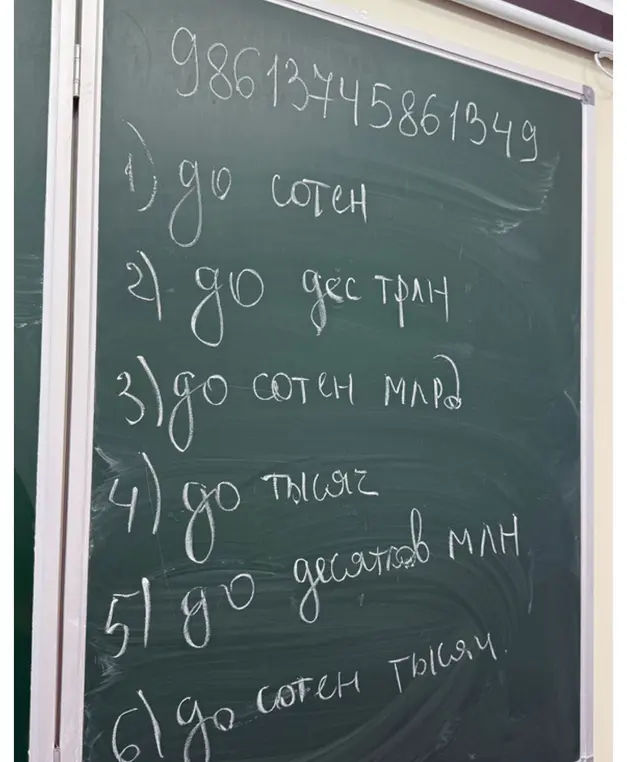 98613745861349
1) до сотен
2) до дес трлн
3) до сотен млрд
4) до тысяч
5) до десятков млн
6) до сотен тысяч.